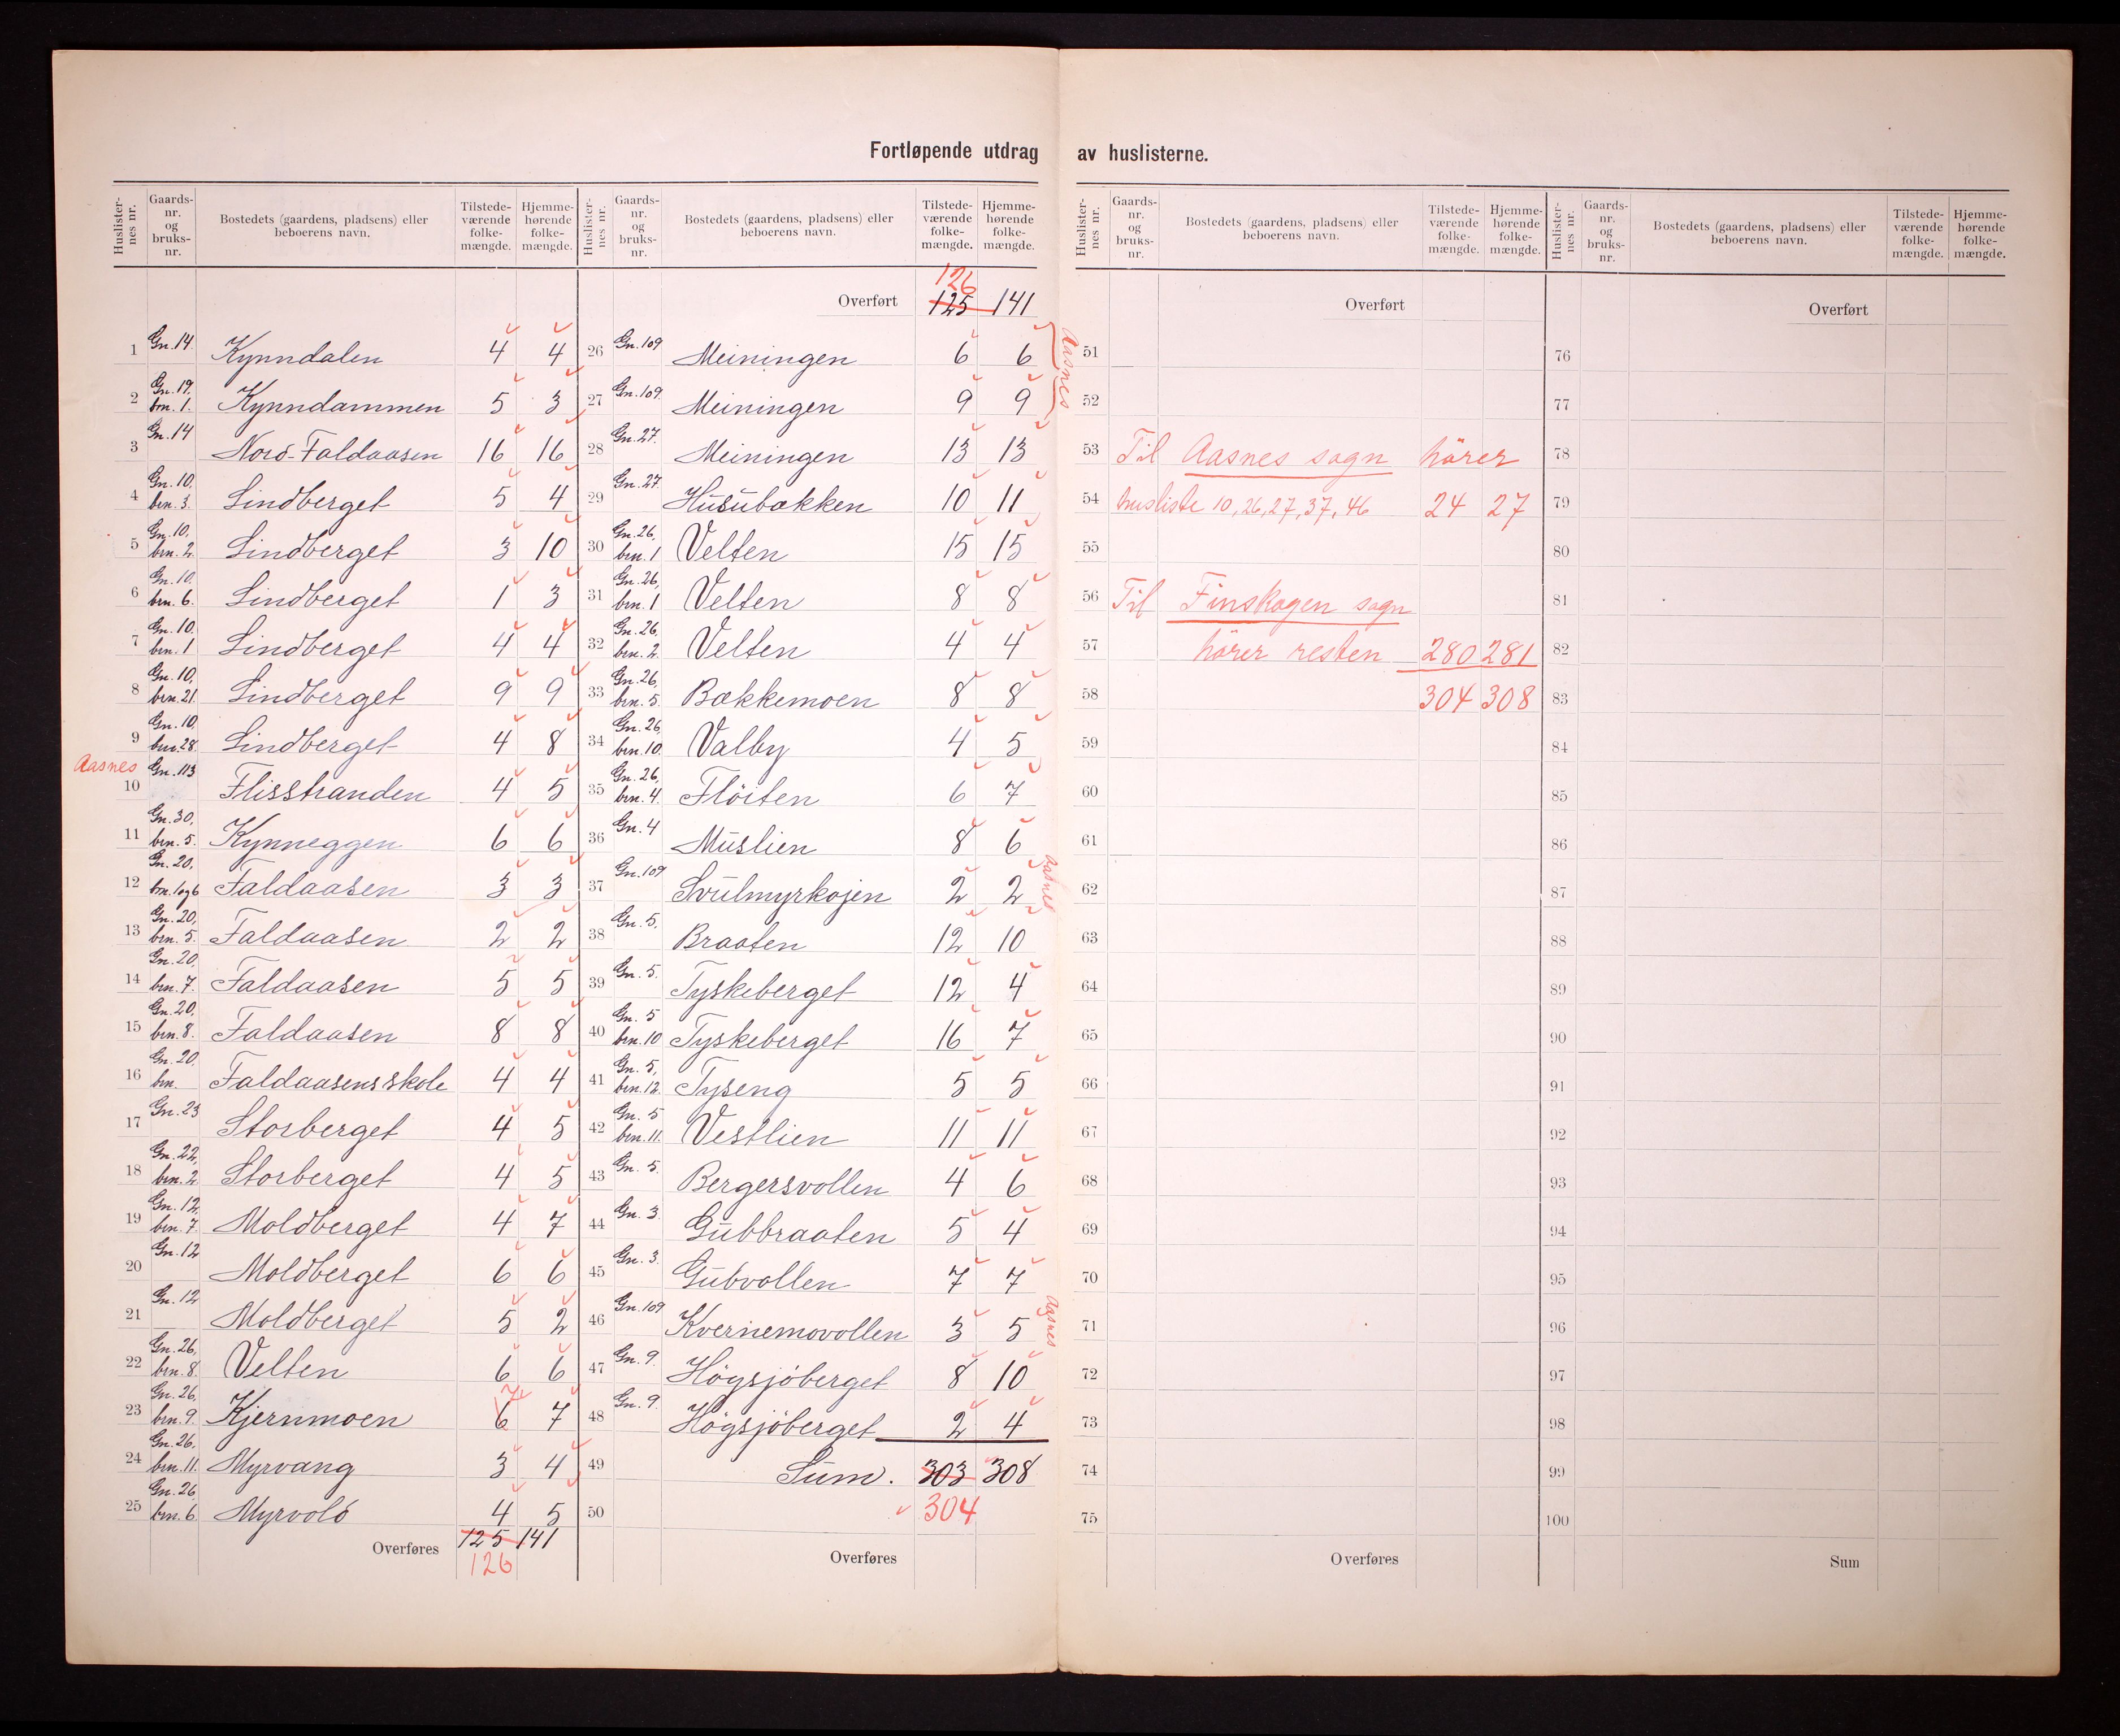 Fortløpende utdrag av huslisterne.
Huslisternes nr. Gaardsnr. og bruksnr. Bostedets (gaardens, pladsens) eller beboerens navn. Tilstedeværende folkemængde. Hjemmehørende folkemængde.
1 Gn. 14. Kynndalen 4 4
2 Gn. 19, brn. 1. Kynndammen 5 3
3 Gn. 14 Nord-Faldaasen 16 16
4 Gn. 10, brn. 3. Lindberget 5 4
5 Gn. 10, brn. 2. Lindberget 3 10
6 Gn. 10. brn. 6. Lindberget 1 3
7 Gn. 10. brn. 1 Lindberget 4 4
8 Gn. 10, brn. 21. Lindberget 9 9
9 Gn. 10, brn. 28. Lindberget 4 8
Aasnes
10 Gn. 113 Flisstranden 4 5
11 Gn. 30, brn. 5. Kynneggen 6 6
12 Gn. 20, brn. 1 og 6 Faldaasen 3 3
13 Gn. 20, brn. 5. Faldaasen 2 2
14 Gn. 20, brn. 7. Faldaasen 5 5
15 Gn. 20, brn. 8. Faldaasen 8 8
16 Gn. 20 brn. Faldaasens skole 4 4
17 Gn. 23 Storberget 4 5
18 Gn. 22, brn. 2 Storberget 4 5
19 Gn. 12, brn. 7. Moldberget 4 7
20 Gn. 12 Moldberget 6 6
21 Gn. 12 Moldberget 5 2
22 Gn. 26, brn. 8. Velten 6 6
23 Gn. 26, brn. 9. Kjernmoen 6 7 7
24 Gn. 26, brn. 11. Myrvang 3 4
25 Gn. 26, brn. 6 Myrvold 4 5
Overføres 125 141
126
Huslisternes nr. Gaardsnr. og bruksnr. Bostedets (gaardens, pladsens) eller beboerens navn. Tilstedeværende folkemængde. Hjemmehørende folkemængde.
126
Overført 125 141
26 Gn. 109 Meiningen 6 6 Aasnes
27 Gn. 109. Meiningen 9 9
28 Gn. 27. Meiningen 13 13
29 Gn. 27. Husubakken 10 11
30 Gn. 26, brn. 1 Velten 15 15
31 Gn. 26, brn. 1 Velten 8 8
32 Gn. 26, brn. 2. Velten 4 4
33 Gn. 26, brn. 5. Bækkemoen 8 8
34 Gn. 26 brn. 10. Valby 4 5
35 Gn. 26, brn. 4. Flöiten 6 7
36 Gn. 4 Muslien 8 6
37 Gn. 109 Svulmyrkojen 2 2 Aasnes
38 Gn. 5, Braaten 12 10
39 Gn. 5. Tyskeberget 12 4
40 Gn. 5 brn. 10 Tyskeberget 16 7
41 Gn. 5, brn. 12. Tyseng 5 5
42 Gn. 5 brn. 11. Vestlien 11 11
43 Gn. 5. Bergersvollen 4 6
44 Gn. 3. Gubbraaten 5 4
45 Gn. 3. Gubvollen 7 7
46 Gn. 109 Kvernemovollen 3 5 Aasnes
47 Gn. 9. Högsjöberget 8 10
48 Gn. 9. Högsjöberget 2 4
49 Sum. 303 308
50 304
Overføres
Huslisternes nr. Gaardsnr. og bruksnr. Bostedets (gaardens, pladsens) eller beboerens navn. Tilstedeværende folkemængde. Hjemmehørende folkemængde.
Overført
51
52
53 Til Aasnes sogn hörer
54 husliste 10, 26, 27, 37, 46 24 27
55
56 Til Finskogen sogn
57 hörer resten 280 281
58 304 308
59
60
61
62
63
64
65
66
67
68
69
70
71
72
73
74
75
Overføres
Huslisternes nr. Gaardsnr. og bruksnr. Bostedets (gaardens, pladsens) eller beboerens navn. Tilstedeværende folkemængde. Hjemmehørende folkemængde.
Overført
76
77
78
79
80
81
82
83
84
85
86
87
88
89
90
91
92
93
94
95
96
97
98
99
100
Sum